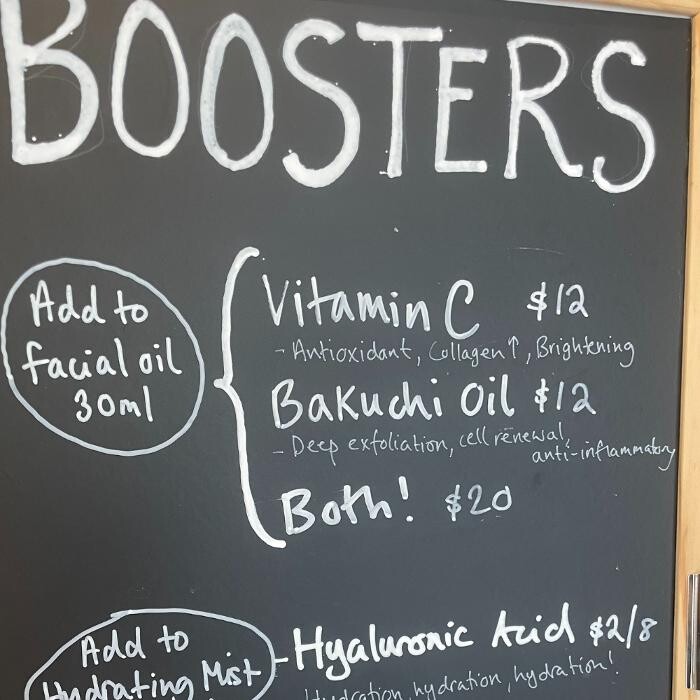 BOOSTERS
Add to
facial oil
30ml
Vitamin C $12
- Antioxidant, Collagen↑, Brightening
Bakuchi Oil $12
- Deep exfoliation, cell renewal,
anti-inflammatory
Both! $20
Add to
Hydrating Mist
- Hyaluronic Acid $2/8
Hydration, hydration, hydration!